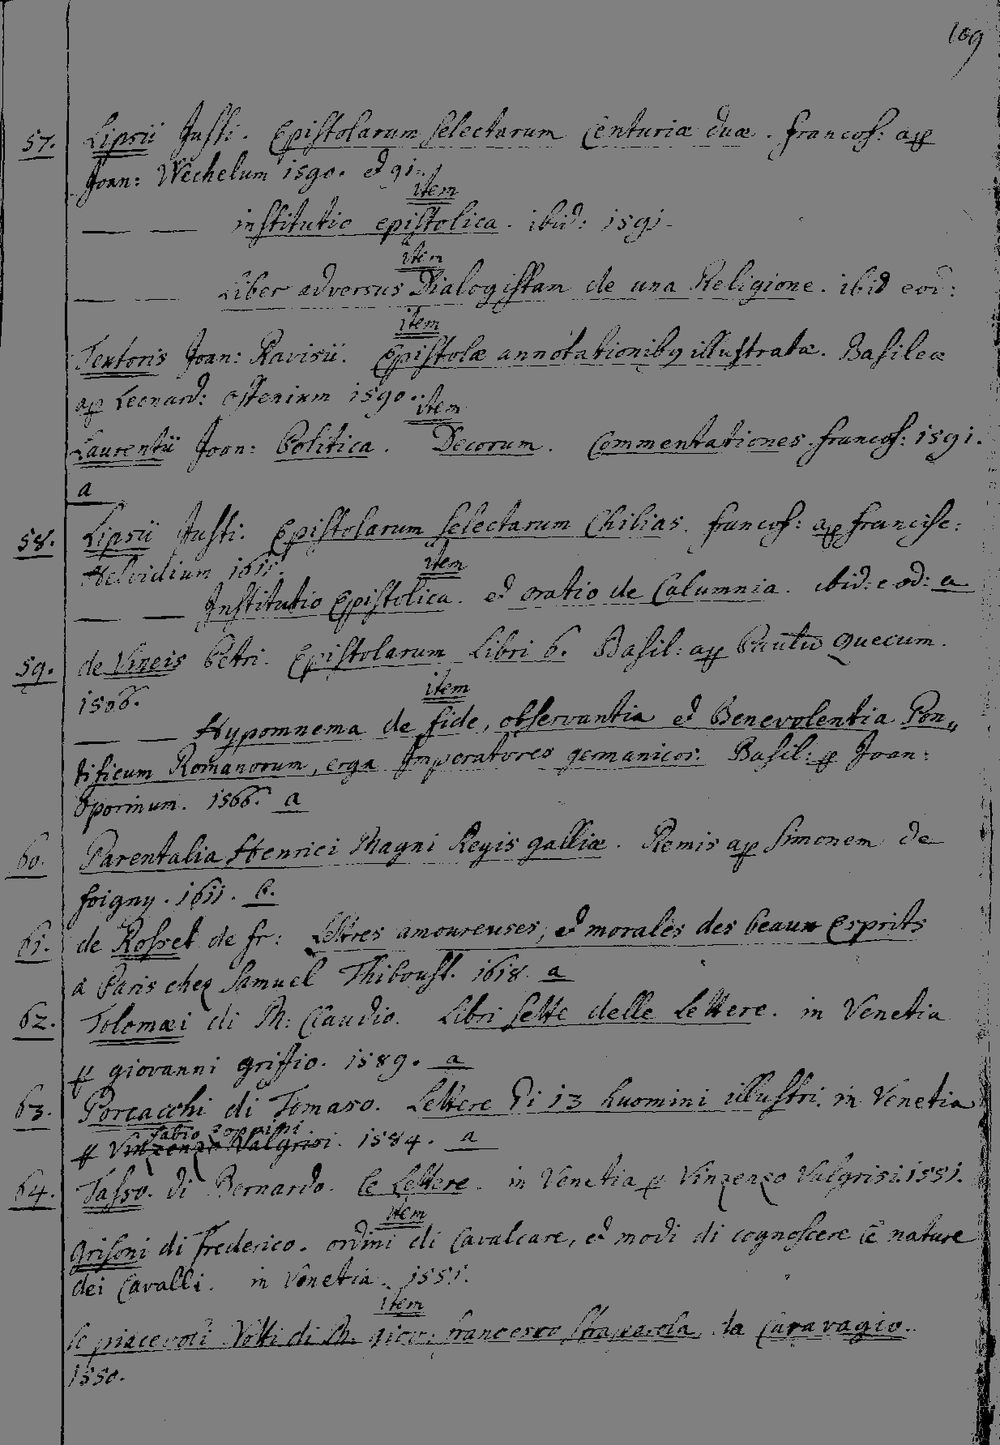 109
57. Lipsii Justi. Epistolarum selectarum Centuriæ duæ. francof: ap
Joan: Wechelum 1590. et 91.
item
— — institutio epistolica. ibid: 1591.
item
— — Liber adversus Dialogistam de una Religione. ibid eod:
item
Textoris Joan: Ravisii. Epistolæ annotationibq illustratæ. Basileæ
ap Leonard: Ostenium 1590.
item
Laurentii Joan: Politica. Decorum. Commentationes. francof: 1591.
a
58. Lipsii Justi. Epistolarum selectarum Chilias. francof: ap Francisc:
Helvidium 1611.
item
— — Institutio Epistolica. et oratio de Calumnia. ibid: eod: a
59. de Vineis Petri. Epistolarum Libri 6. Basil: ap Paulū Quecum.
1566.
item
— — Hypomnema de fide, observantia et Benevolentia Pon„
tificum Romanorum, erga Imperatores germanicos: Basil: p Joan:
Oporinum. 1566. a
60. Parentalia Henrici Magni Regis galliæ. Remis ap Simonem de
foigny. 1611. b.
61. de Rosset de fr: Lettres amoureuses, et morales des beaux Esprits
a Paris chez Samuel Thiboust. 1618. a
62. Tolomæi di M: Claudio. Libri sette delle Lettere. in Venetia
p giovanni griffio. 1589. a
63. Porcacchi di Tomaso. Lettere di 13 huomini illustri. in Venetia
fabio zoppini
p Vinzenzo Valgrisi. 1584. a
64. Tasso. di Bernardo. le Lettere. in Venetia p Vinzenzo Valgrisi. 1551.
item
Grisoni di frederico. ordini di Cavalcare, et modi di cognoscere le nature
dei Cavalli. in Venetia. 1551.
item
le piacevoli Notti di M. giov: francesco Straparola da Caravagio.
1550.